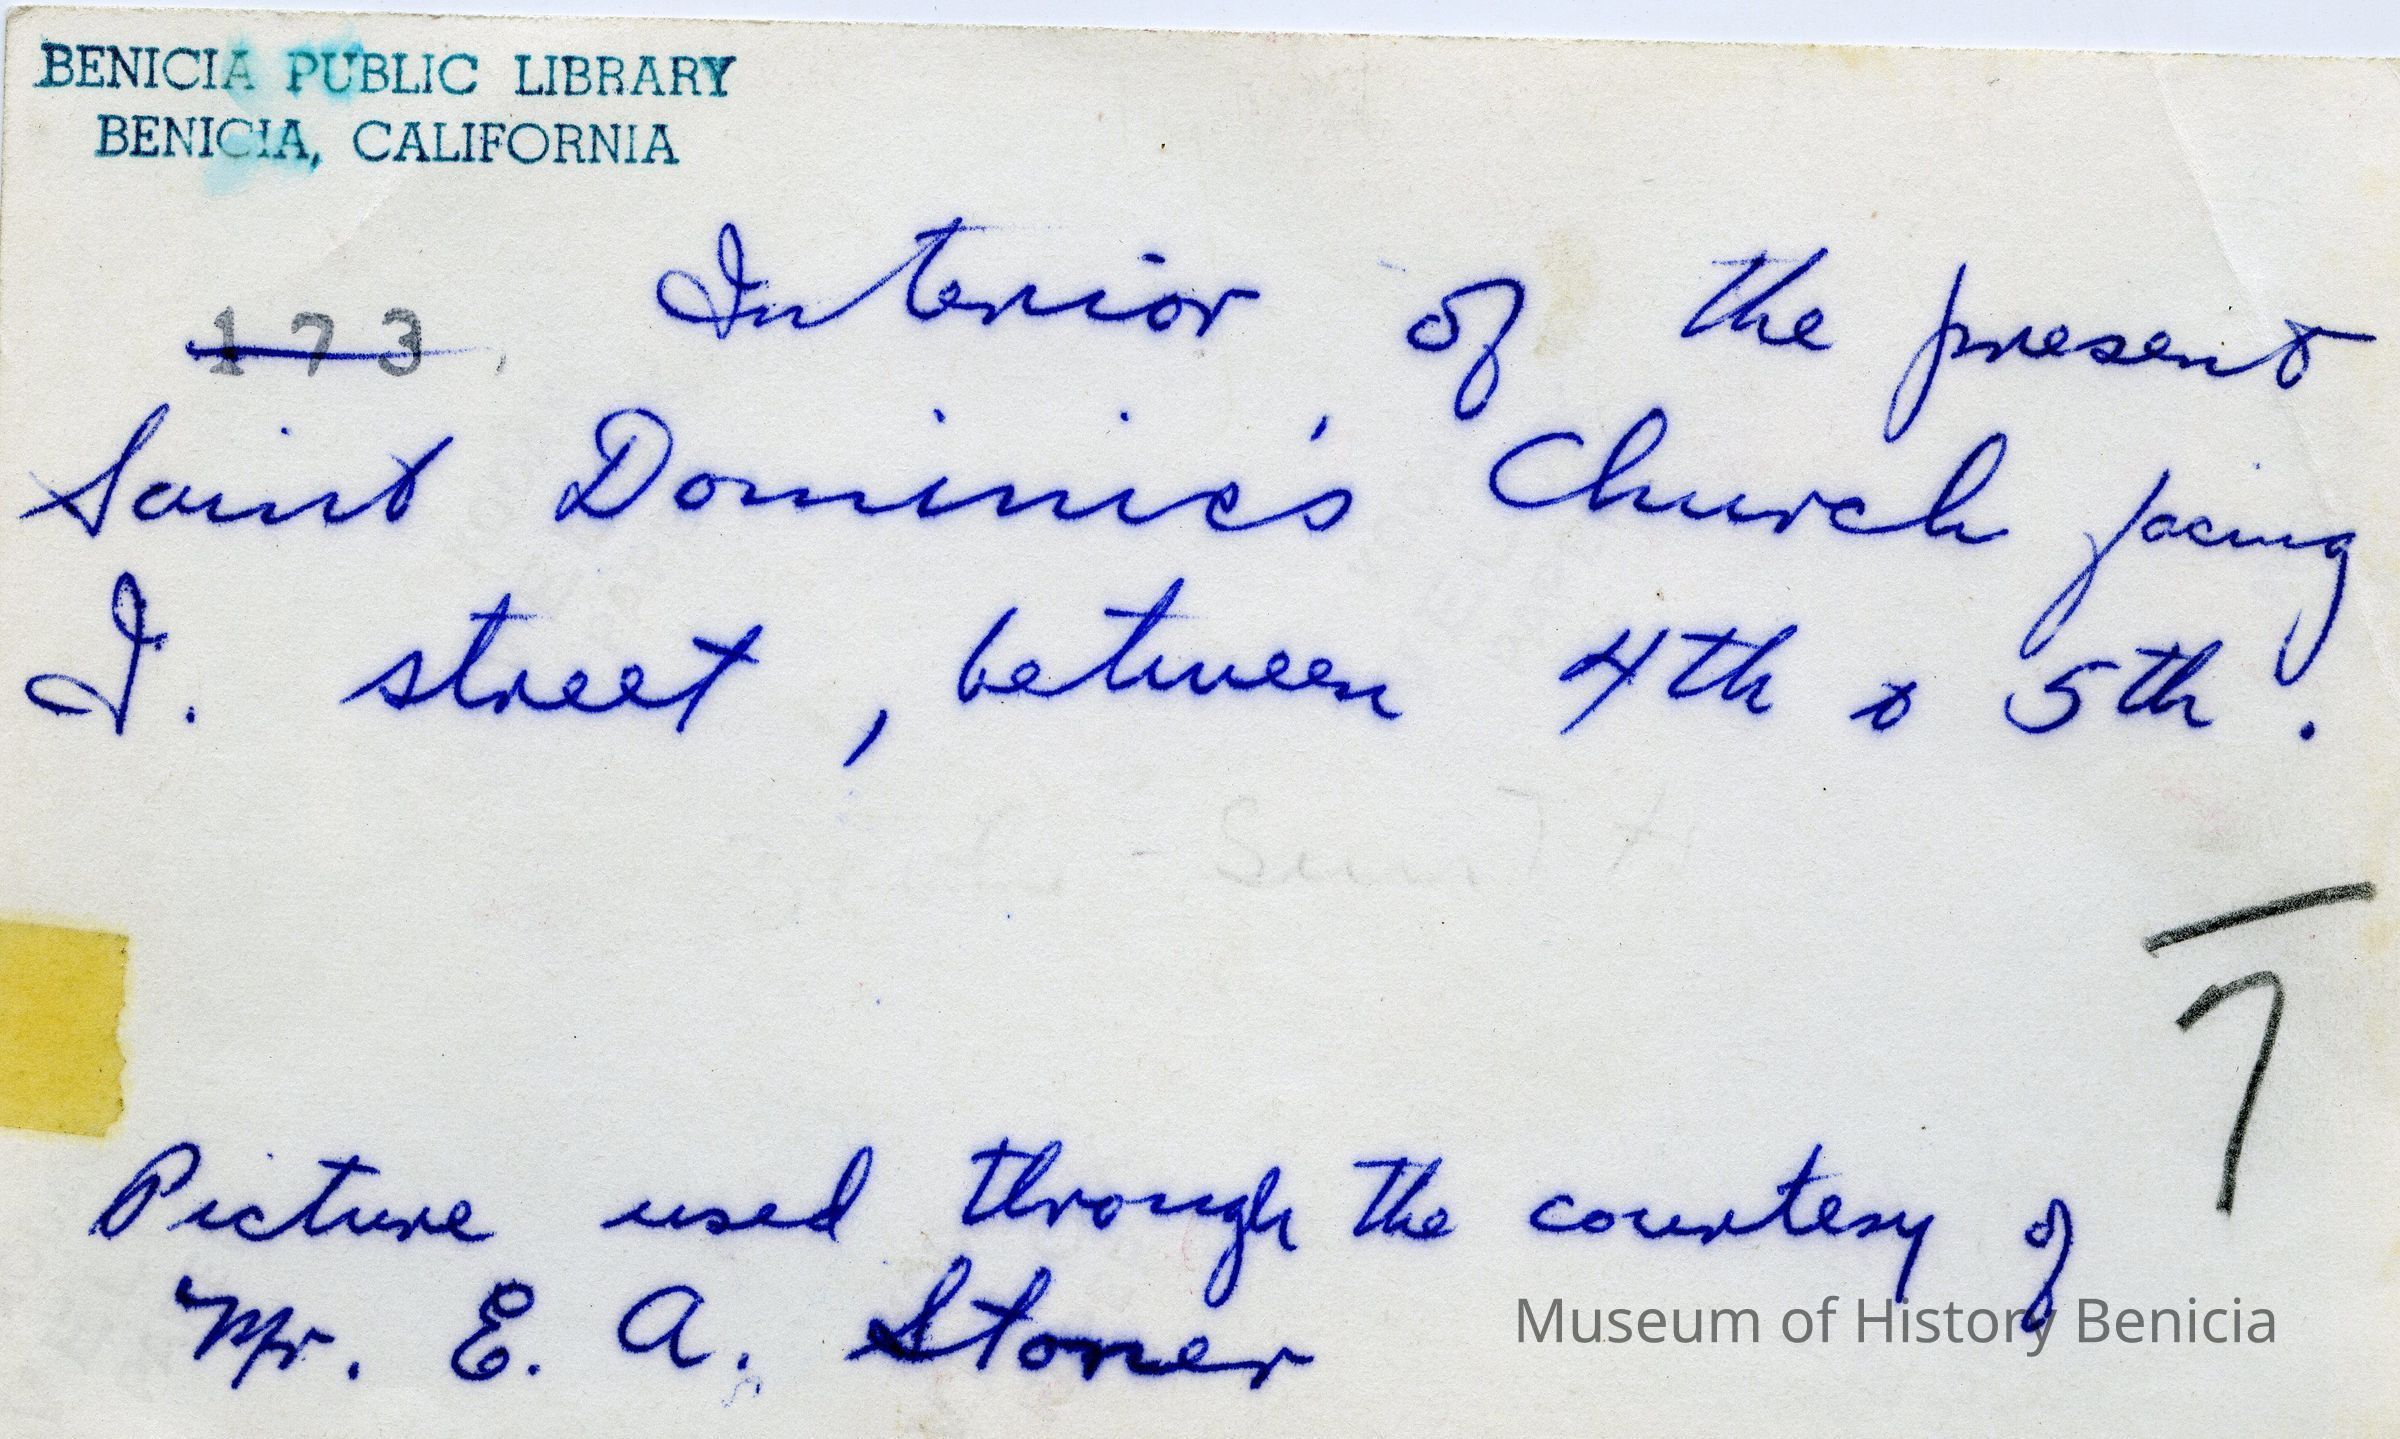 BENICIA PUBLIC LIBRARY
BENICIA, CALIFORNIA
173
Interior of the present
Saint Dominic's Church facing
I. street, between 4th & 5th.
7
Picture used through the courtesy of
Mr. E. A. Stoner
Museum of History Benicia